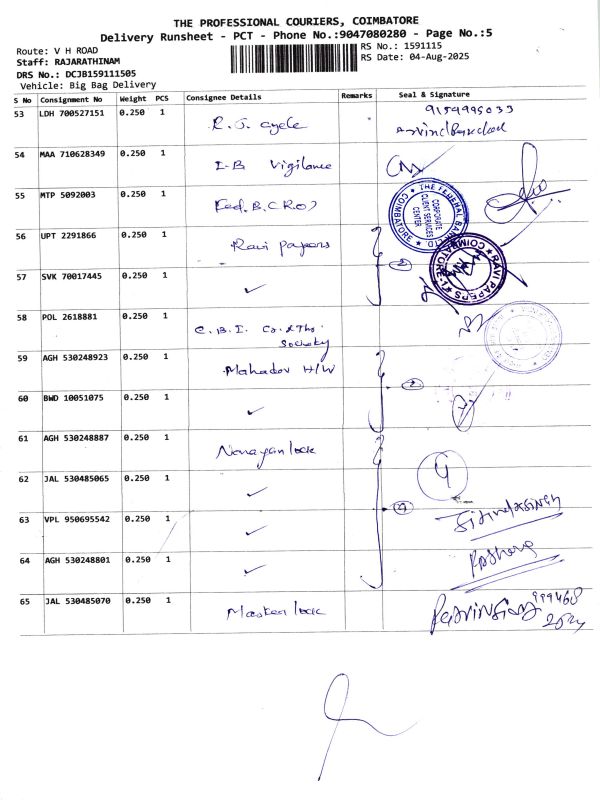 THE PROFESSIONAL COURIERS, COIMBATORE
Delivery Runsheet - PCT - Phone No.:9047080280 - Page No.:5
Route: V H ROAD
RS No.: 1591115
Staff: RAJARATHINAM
RS Date: 04-Aug-2025
DRS No.: DCJB159111505
Vehicle: Big Bag Delivery
S No Consignment No Weight PCS Consignee Details Remarks Seal & Signature
53 LDH 700527151 0.250 1 R.J. cycle 9159995033
54 MAA 710628349 0.250 1 I-B Vigilance
55 MTP 5092003 0.250 1 Fed. B.C.R.O)
THE FEDERAL BANK LTD
CORPORATE
CLIENT SERVICES
CENTER
COIMBATORE
56 UPT 2291866 0.250 1 Ravi papers
RAVI PAPERS
COIMBATORE-1
57 SVK 70017445 0.250 1 ✓
58 POL 2618881 0.250 1 C.B.I. Co. & Tho.
Society
59 AGH 530248923 0.250 1 Mahadev H/W
2
60 BWD 10051075 0.250 1 ✓
61 AGH 530248887 0.250 1 Narayan lock
62 JAL 530485065 0.250 1 ✓
4
63 VPL 950695542 0.250 1 ✓
64 AGH 530248801 0.250 1 ✓
65 JAL 530485070 0.250 1 Master lock